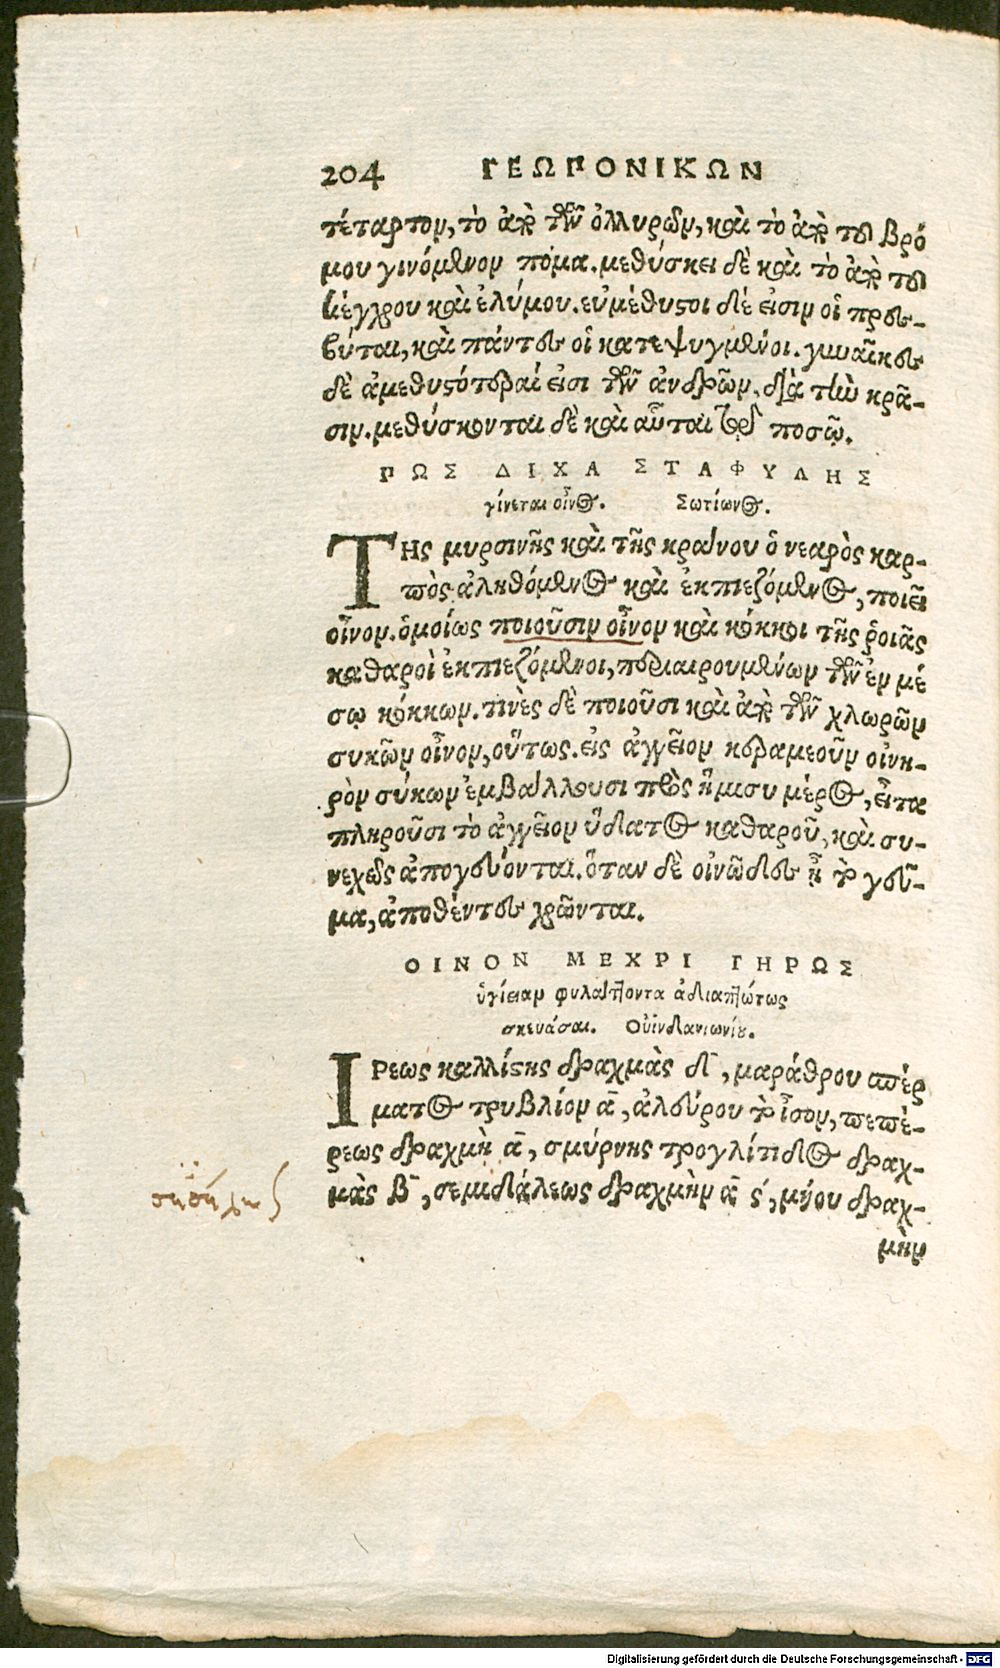 204 ΓΕΩΠΟΝΙΚΩΝ
τέταρτον, τὸ ἀπὸ τῶν ὀλλυρῶν, καὶ τὸ ἀπὸ τοῦ βρό
μου γινόμενον πόμα. μεθύσκει δὲ καὶ τὸ ἀπὸ τοῦ
κέγχρου καὶ ἐλύμου. εὐμέθυστοι δέ εἰσιν οἱ πρεσ-
βύται, καὶ πάντες οἱ κατεψυγμένοι. γυναῖκες
δὲ ἀμεθυστότεραί εἰσι τῶν ἀνδρῶν, διὰ τὴν κρᾶ-
σιν. μεθύσκονται δὲ καὶ αὗται ποσῷ.
ΠΩΣ ΔΙΧΑ ΣΤΑΦΥΛΗΣ
γίνεται οἶνος. Σωτίωνος.
ΤΗς μυρσινῆς καὶ τῆς κράνου ὁ νεαρὸς καρ-
πὸς ἀληθόμενος καὶ ἐκπιεζόμενος, ποιεῖ
οἶνον. ὁμοίως ποιοῦσιν οἶνον καὶ κόκκοι τῆς ῥοιᾶς
καθαροὶ ἐκπιεζόμενοι, περιαιρουμένων τῶν ἐν μέ
σῳ κόκκων. τινὲς δὲ ποιοῦσι καὶ ἀπὸ τῶν χλωρῶν
συκῶν οἶνον, οὕτως. εἰς ἀγγεῖον κεραμεοῦν οἰνη-
ρὸν σύκων ἐμβάλλουσι πρὸς ἥμισυ μέρος, εἶτα
πληροῦσι τὸ ἀγγεῖον ὕδατος καθαροῦ, καὶ συ-
νεχῶς ἀπογεύονται. ὅταν δὲ οἰνῶδες ᾖ τὸ γεῦ-
μα, ἀποθέντες χρῶνται.
ΟΙΝΟΝ ΜΕΧΡΙ ΓΗΡΩΣ
ὑγίειαν φυλάττοντα ἀδιαπτώτως
σκευάσαι. Οὐϊνδανιωνίου.
ΙΡεως καλλίστης δραχμὰς δ̄, μαράθρου σπέρ
ματος τρυβλίον ᾱ, ἀλεύρου τὸ ἴσον, πεπέ-
ρεως δραχμὴ ᾱ, σμύρνης τρογλίτιδος δραχ-
μὰς β̄, σεμιδάλεως δραχμὴν ᾱ ϛ΄, μήου δραχ-
μὴν